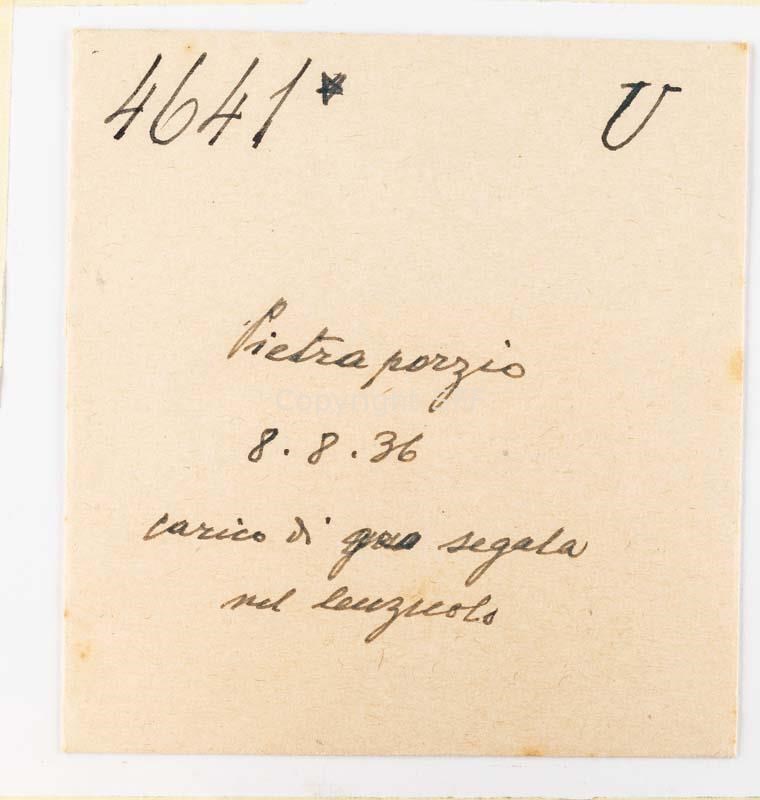 4641* U
Pietraporzio
8.8.36
carico di segala
nel lenzuolo